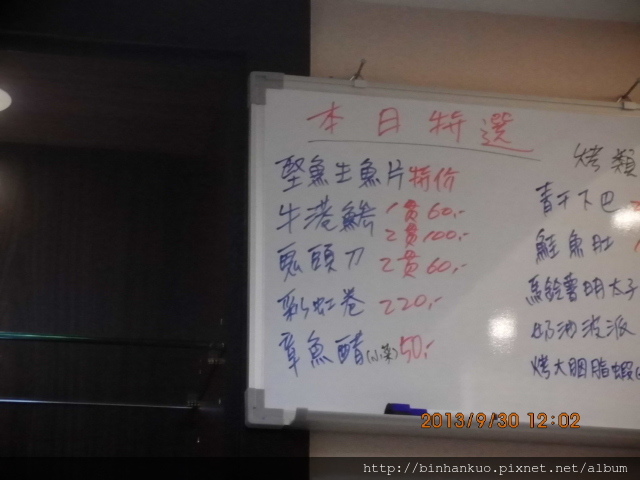 本日特選
堅魚生魚片特价
牛港鰺 1貫60.-
2貫100.-
鬼頭刀 2貫60.-
彩虹卷 220.-
章魚醋(小菜)50.-
烤類
青干下巴
鮭魚肚
馬鈴薯明太子
奶油波派
烤大胭脂蝦
2013/9/30 12:02
http://binhankuo.pixnet.net/album